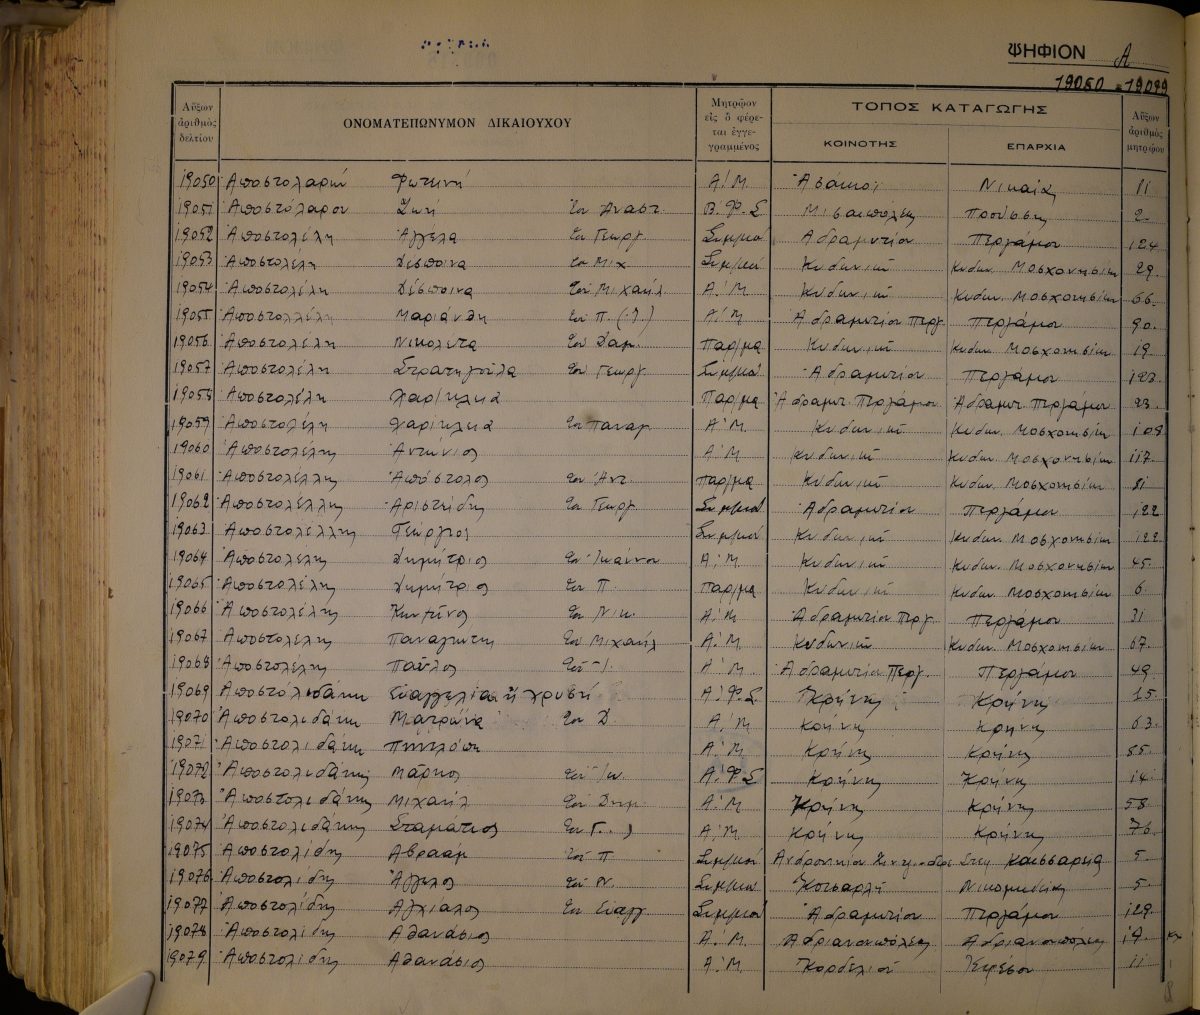 ΨΗΦΙΟΝ Α
19050 - 19099
Αὔξων ἀριθμὸς δελτίου
ΟΝΟΜΑΤΕΠΩΝΥΜΟΝ ΔΙΚΑΙΟΥΧΟΥ
Μητρῷον εἰς ὃ φέρεται ἐγγεγραμμένος
ΤΟΠΟΣ ΚΑΤΑΓΩΓΗΣ
ΚΟΙΝΟΤΗΣ
ΕΠΑΡΧΙΑ
Αὔξων ἀριθμὸς μητρῴου
19050 Ἀποστολαρῆ Φωτεινή Α.Μ. Νικαίας 11
19051 Ἀποστόλαρου Ζωή τοῦ Ἀναστ. Β.Φ.Σ. Προύσσης 2
19052 Ἀποστολέλη Ἀγγέλα τοῦ Γεωργ. Σύμμ. Ἀδραμυτίου Περγάμου 124
19053 Ἀποστολέλη Δέσποινα τοῦ Μιχ Κυδωνιῶν Κυδων. Μοσχονησίων 29
19054 Ἀποστολέλη Δέσποινα τοῦ Μιχαήλ Α.Μ. Κυδωνιῶν Κυδων. Μοσχονησίων 66
19055 Ἀποστολλέλη Μαριάνθη τοῦ Π. Α.Μ. Ἀδραμυτίου Περγ. Περγάμου 90
19056 Ἀποστολέλη Νικολέτα τοῦ Δαμ. Παρ/μα Κυδωνιῶν Κυδων. Μοσχονησίων 19
19057 Ἀποστολέλη Στρατηγούλα τοῦ Γεωργ. Ἀδραμυτίου Περγάμου 123
19058 Ἀποστολέλη Χαρίκλεια Παρ/μα Ἀδραμυτ. Περγάμου Ἀδραμυτ. Περγάμου 23
19059 Ἀποστολέλη Χαρίκλεια τοῦ Παναγ. Α.Μ. Κυδωνιῶν Κυδων. Μοσχονησίων 109
19060 Ἀποστολέλης Ἀντώνιος Α.Μ. Κυδωνιῶν Κυδων. Μοσχονησίων 117
19061 Ἀποστολέλλης Ἀπόστολος τοῦ Ἀντ. Παρ/μα Κυδωνιῶν Κυδων. Μοσχονησίων 81
19062 Ἀποστολέλλης Ἀριστείδης τοῦ Γεωργ. Ἀδραμυτίου Περγάμου 122
19063 Ἀποστολέλλης Γεώργιος Κυδωνιῶν Κυδων. Μοσχονησίων 122
19064 Ἀποστολέλης Δημήτριος τοῦ Ἰωάννου Α.Μ. Κυδωνιῶν Κυδων. Μοσχονησίων 45
19065 Ἀποστολέλης Δημήτριος τοῦ Π. Παρ/μα Κυδωνιῶν Κυδων. Μοσχονησίων 6
19066 Ἀποστολέλης Κων/τῖνος τοῦ Νικ. Α.Μ. Ἀδραμυτίου Περγ. Περγάμου 31
19067 Ἀποστολέλης Παναγιώτης τοῦ Μιχαήλ Α.Μ. Κυδωνιῶν Κυδων. Μοσχονησίων 67
19068 Ἀποστολέλης Παῦλος τοῦ Ἰ. Α.Μ. Ἀδραμυτίου Περγ. Περγάμου 49
19069 Ἀποστολιδάκη Εὐαγγελία ἢ Χρυσή Α.Φ.Σ. Κρήνης Κρήνης 15
19070 Ἀποστολιδάκη Ματρώνα τοῦ Δ. Α.Μ. Κρήνης Κρήνης 63
19071 Ἀποστολιδάκη Πηνελόπη Α.Μ. Κρήνης Κρήνης 85
19072 Ἀποστολιδάκης Μάρκος τοῦ Ἰω. Α.Φ.Σ Κρήνης Κρήνης 14
19073 Ἀποστολιδάκης Μιχαήλ τοῦ Δημ. Α.Μ. Κρήνης Κρήνης 58
19074 Ἀποστολιδάκης Σταμάτιος τοῦ Γ. Α.Μ. Κρήνης Κρήνης 76
19075 Ἀποστολίδης Ἀβραάμ τοῦ Π Ἀνδρονικίου Καισσαρείας 5
19076 Ἀποστολίδης Ἄγγελος τοῦ Ν. Νικομηδείας 5
19077 Ἀποστολίδης Ἀγχίαλος τοῦ Εὐαγγ Ἀδραμυτίου Περγάμου 129
19078 Ἀποστολίδης Ἀθανάσιος Α.Μ. Ἀδριανουπόλεως Ἀδριανουπόλεως 17
19079 Ἀποστολίδης Ἀθανάσιος Α.Μ. Κορδελιοῦ Ἐφέσου 11